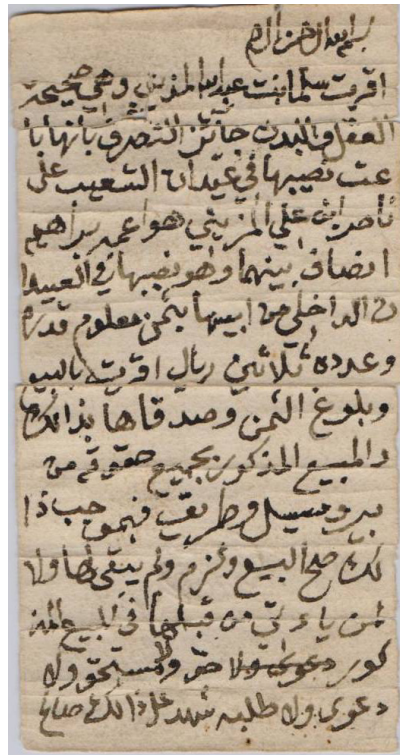 بسم الله الرحمن الرحيم
اقرت سلما بنت عبدالله المزيني وهي صحيحة
العقل والبدن جائز التصرف بأنها با
عت نصيبها في عيدان الشعيب على
ناصر ابن علي المزيني هو اعمه براهيم
انصاف بينهما وهو نصيبها في العيدا
ن الداخلي من ابيها بثمن معلوم قدره
وعدده ثلاثين ريال اقرت بالبيع
وبلوغ الثمن وصدقاها بذالك
والمبيع المذكور بجميع حقوقه من
بير ومسيل وطريق فبموجب ذا
لك صح البيع ولزم ولم يبقى لها ولا
لمن ياءتي من قبلها في المبيع المذ
كور دعوى ولا حق ولا مستحق ولا
دعوى ولا طلبه شهد على ذالك صالح